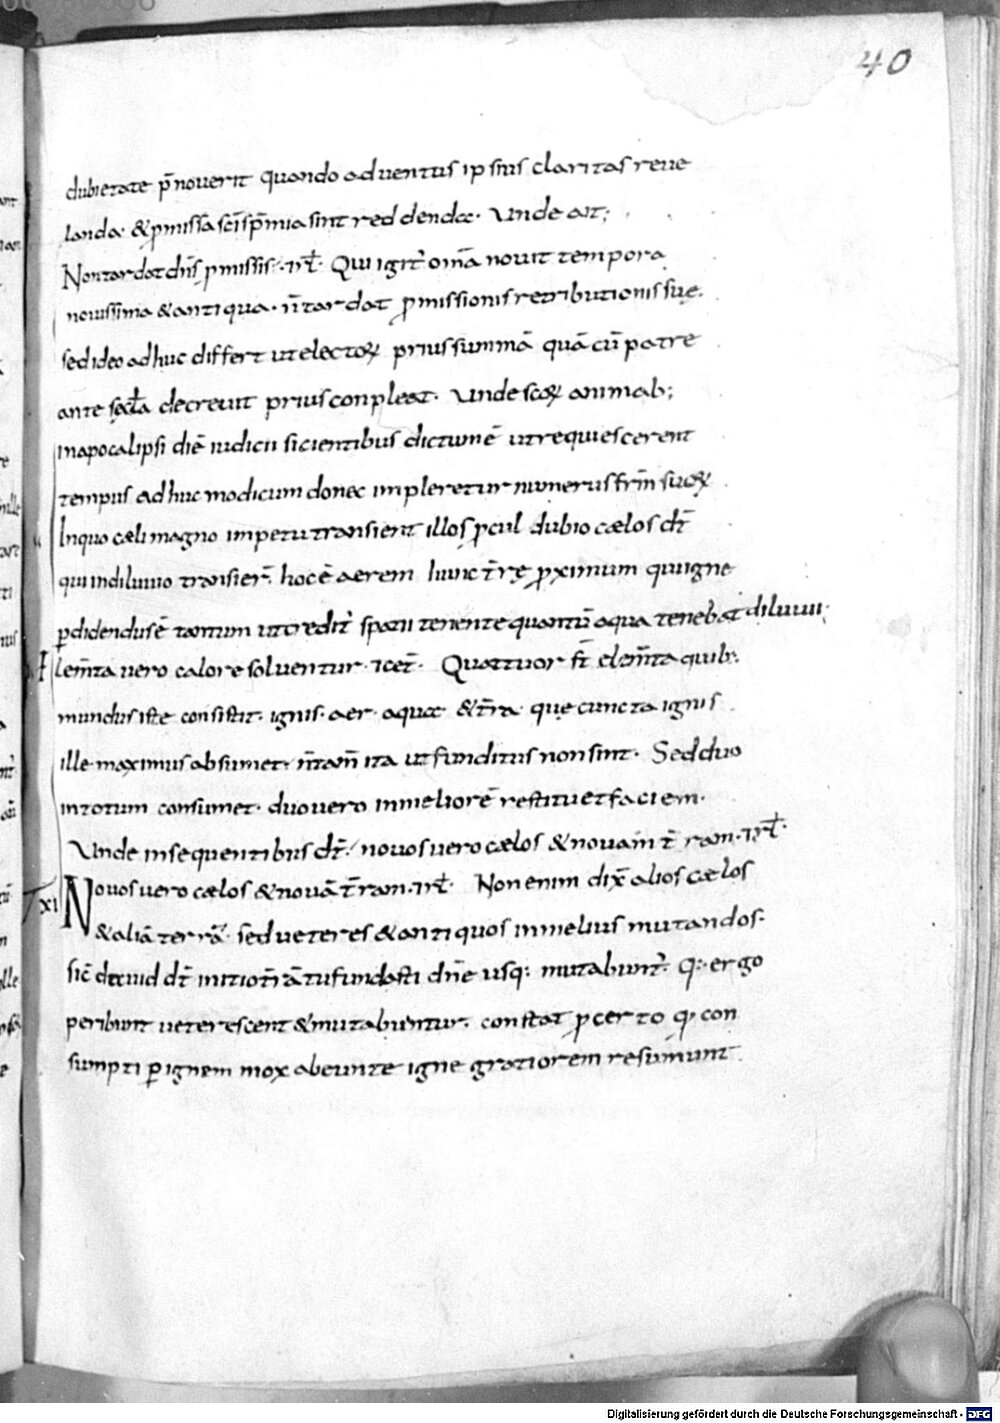 40
dubietate p̄noverit quando adventus ipsius claritas reve
landa· & ꝓmissa sc̄is p̄mia sint reddendae· Unde ait;
Non tardat dn̄s ꝓmissis·
Qui igit̄ om̄a novit tempora
novissima & antiqua· n̄ tardat ꝓmissionis retributionis suę·
sed ideo adhuc differt ut electoꝝ prius summā quā cū patre
ante sæcła decrevit prius conpleat· Unde scōꝝ animab;
in apocalipsi diē iudicii sicientibus dictum ē ut requiescerent
tempus adhuc modicum donec impleretur numerus frm̄ suoꝝ
In quo cæli magno impetu transient illos ꝓcul dubio cælos dt̄
qui in diluvio transier̄· hoc ē aerem hunc t̄rę ꝓximum qui igne
ꝑdidendus ē tantum ut credit̄ spatii tenente quantū aqua tenebat diluvii·
Elem̄ta vero calore solventur· &cet̄· Quattuor st̄ elem̄ta quib;
mundus iste consistit· ignis· aer· aqua· & t̄ra· que cuncta ignis
ille maximus absumet· n̄ tam̄ ita ut funditus non sint· Sed duo
in totum consumet· duo vero in meliorē restituet faciem·
Unde in sequentibus dt̄· novos vero cælos & novam t̄ram·
XI Novos vero cælos & novā t̄ram· Non enim dix̄ alios cælos
& aliā terrā· sed veteres & antiquos in melius mutandos·
sic̄ david dt̄ initio t̄rā tu fundasti dn̄e usq; mutabunt̄· Q· ergo
peribunt veterescent & mutabuntur· constat ꝓ certo q· con
sumpti ꝑ ignem mox abeunte igne gratiorem resumunt
Digitalisierung gefördert durch die Deutsche Forschungsgemeinschaft - DFG